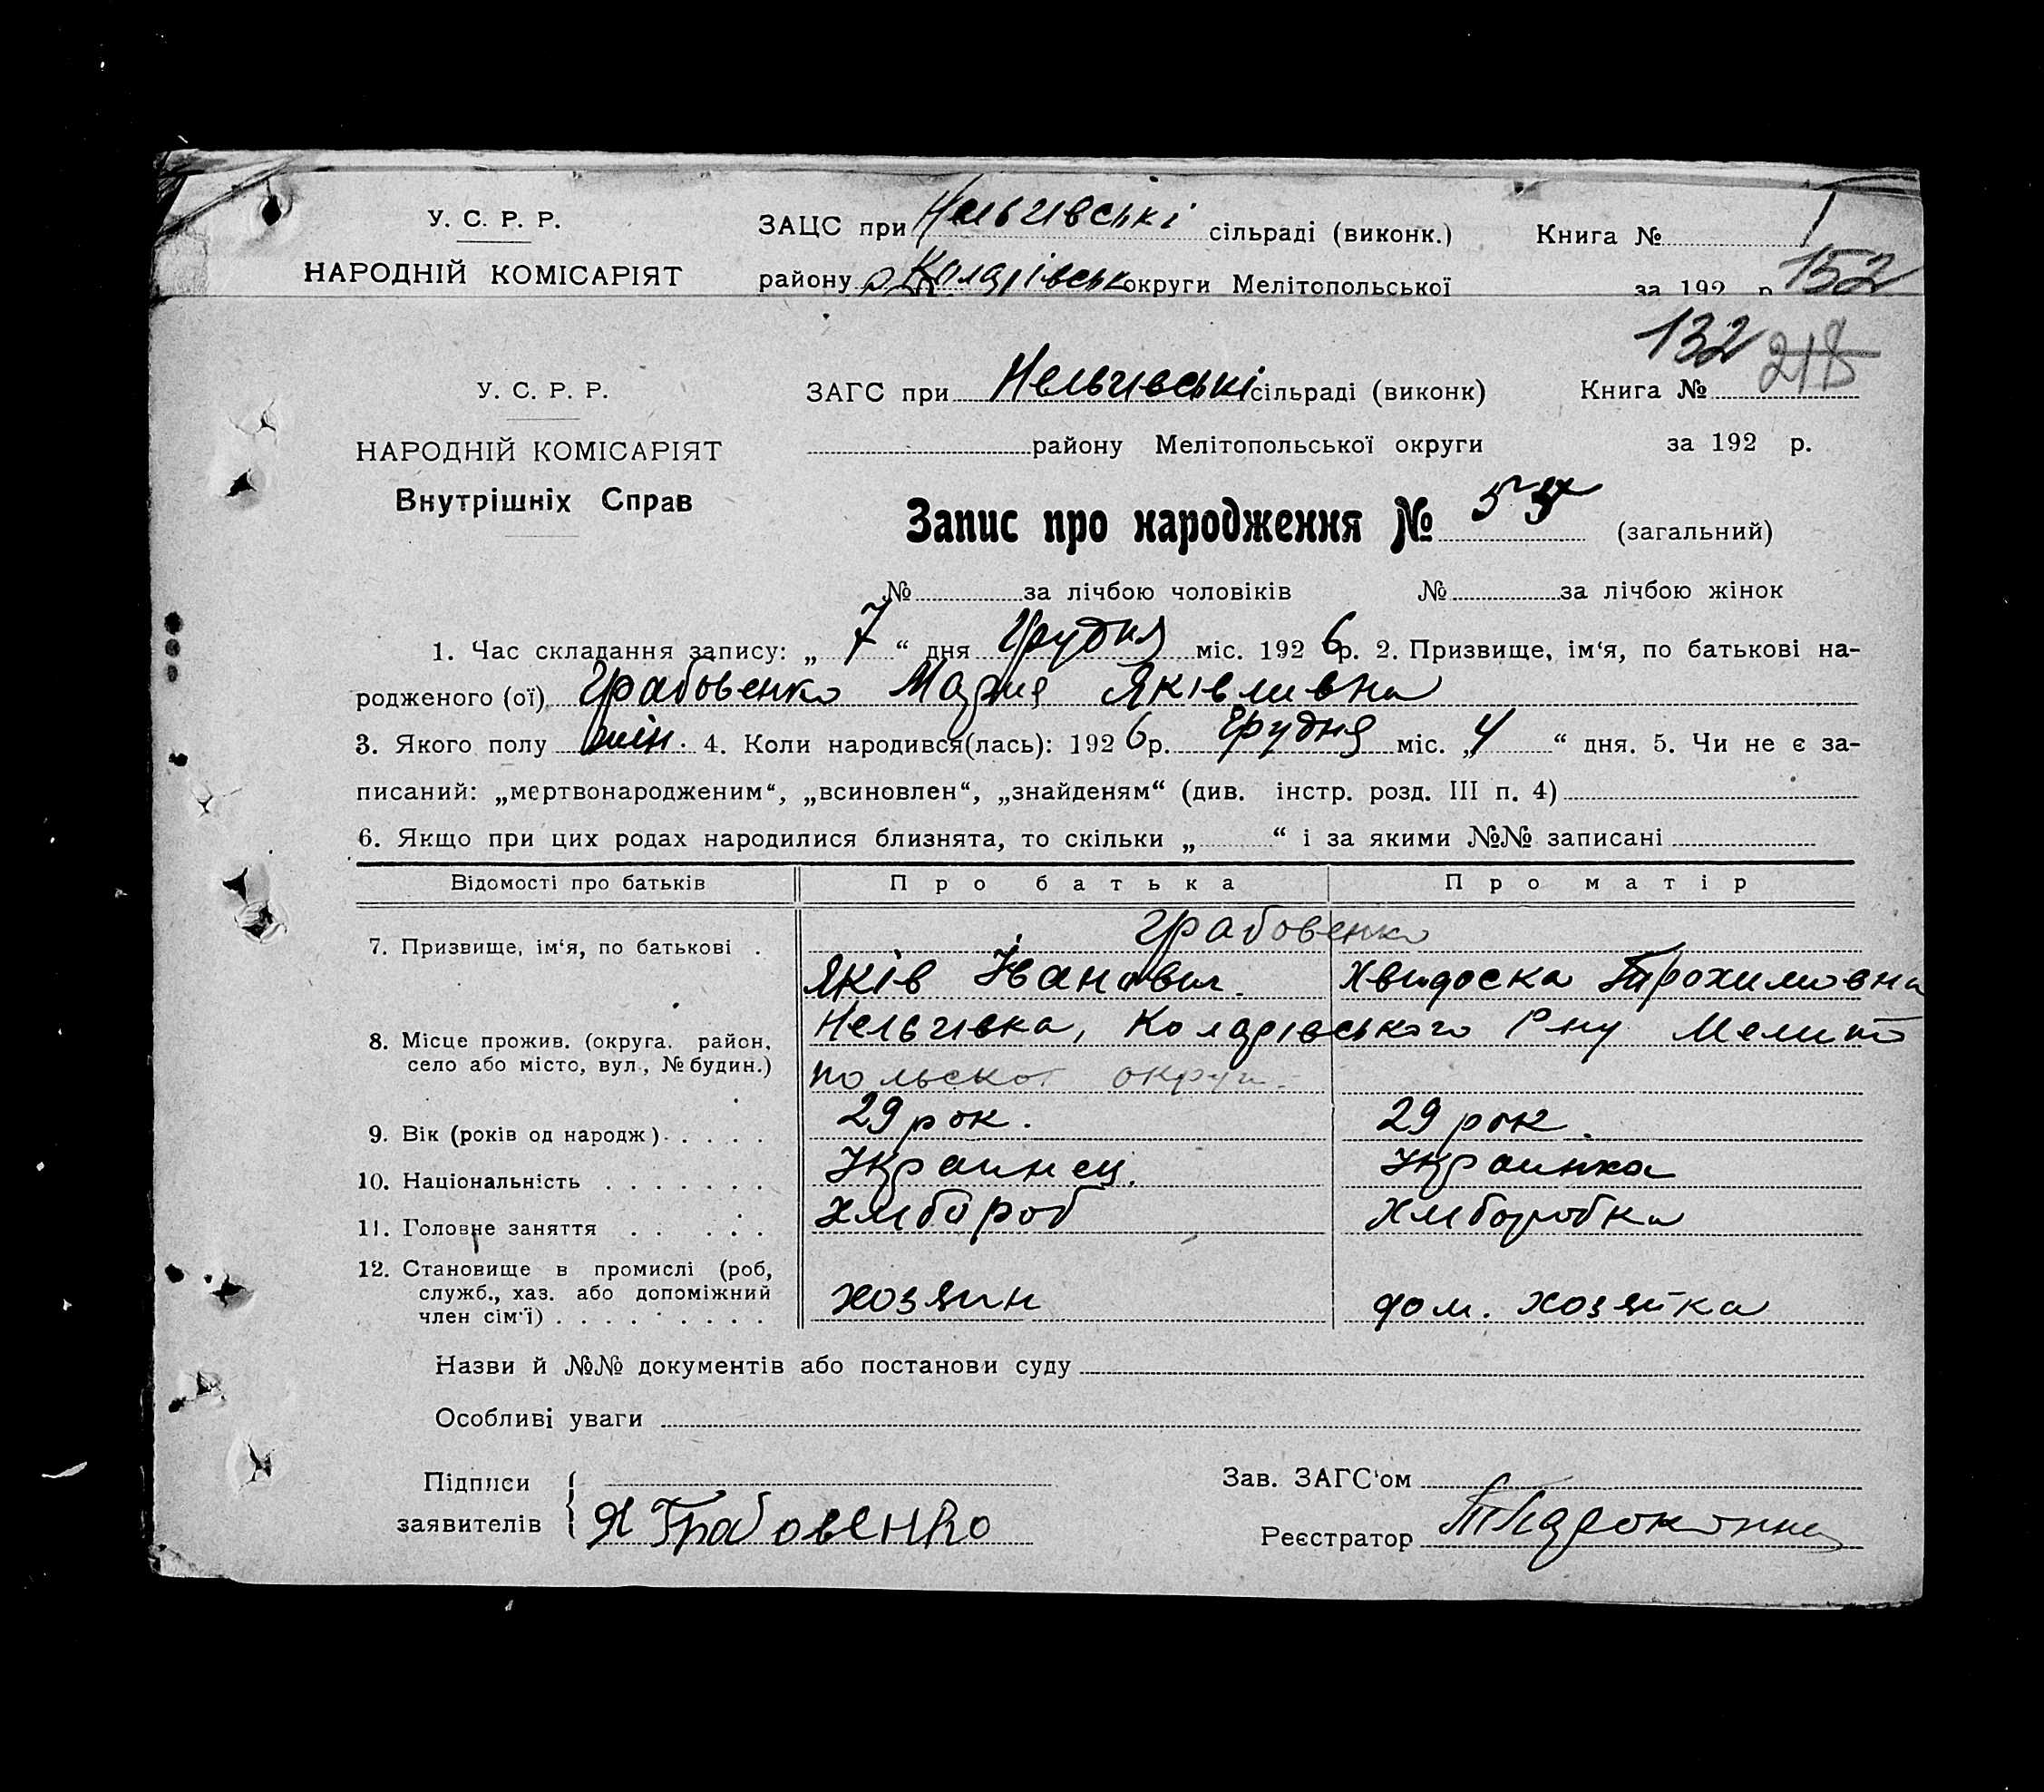 У. С. Р. Р. ЗАЦС при Нельгивські сільраді (виконк.) Книга № 1
НАРОДНІЙ КОМІСАРІЯТ району Колярівськ округи Мелітопольської за 192 р. 152
132 218
У. С. Р. Р. ЗАГС при Нельгивські сільраді (виконк) Книга №
НАРОДНІЙ КОМІСАРІЯТ району Мелітопольської округи за 192 р.
Внутрішніх Справ
Запис про народження № (загальний)
№ за лічбою чоловіків № за лічбою жінок
1. Час складання запису: „ 7 “ дня Грудня міс. 192 6 р. 2. Призвище, ім‘я, по батькові на-
родженого (ої) Грабовенко Мария Яківливна
3. Якого полу жін. 4. Коли народився(лась): 192 6 р. Грудня міс. „ 4 “ дня. 5. Чи не є за-
писаний: „мертвонародженим“, „всиновлен“, „знайденям“ (див. інстр. розд. III п. 4)
6. Якщо при цих родах народилися близнята, то скільки „ “ і за якими №№ записані
Відомості про батьків Про батька Про матір
7. Призвище, ім‘я, по батькові . Грабовенко
Яків Іванович. Хвидоска Трохимовна
8. Місце прожив. (округа. район, Нельгивка, Колярівського Рну Мелито
село або місто, вул., № будин.) польскої округи.
9. Вік (років од народж) . . . . 29 рок. 29 рок.
10. Національність . . . . . . . Украинец. Украинка
11. Головне заняття . . . . . Хлибороб Хлиборобка
12. Становище в промислі (роб,
служб., хаз. або допоміжний хозяин дом. хозяйка
член сім‘ї) . . . . . . . . .
Назви й №№ документів або постанови суду
Особливі уваги
Підписи Зав. ЗАГС‘ом
заявителів Я Грабовенко Реєстратор